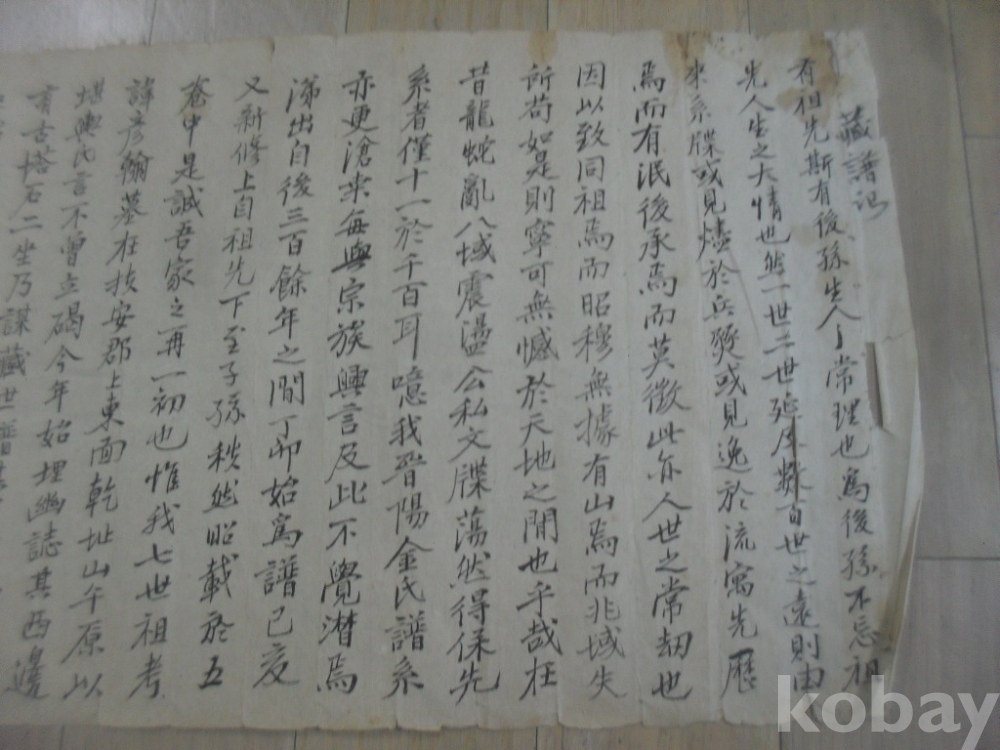 藏譜記
有祖先斯有後孫生人之常理也爲後孫不忘祖
先人生之大情也然一世二世延及數百世之遠則由
來系牒或見燼於兵燹或見逸於流寓先曆
焉而有泯後承焉而莫徵此亦人世之常刼也
因以致同祖焉而昭穆無據有山焉而非域失
所苟如是則寧可無憾於天地之間也乎哉在
昔龍蛇亂八域震盪公私文牒蕩然得保先
系者僅十一於千百耳噫我晋陽金氏譜系
亦更滄桒每與宗族興言及此不覺潸焉
涕出自後三百餘年之間丁卯始爲譜己亥
又新修上自祖先下至子孫秩然昭載於五
卷中是誠吾家之再一初也惟我七世祖考
諱彦翰墓在扶安郡上東面乾址山午原以
堪輿氏言不曾立碣今年始埋幽誌其西邊
有古塔石二坐乃謀藏世譜
kobay